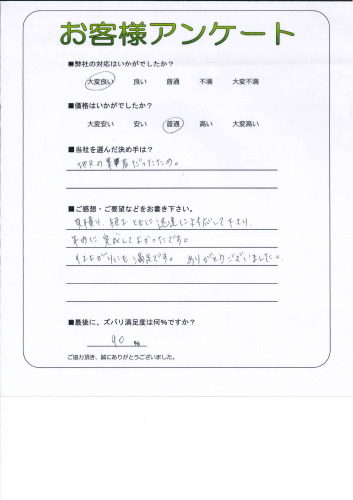 お客様アンケート
■弊社の対応はいかがでしたか?
大変良い 良い 普通 不満 大変不満
■価格はいかがでしたか?
大変安い 安い 普通 高い 大変高い
■当社を選んだ決め手は?
地元の業者だったため。
■ご感想・ご要望などをお書き下さい。
見積り、ともに迅速に対応して下さり
早めに完成してよかったです。
仕上がりにも満足です。 ありがとうございました。
■最後に、ズバリ満足度は何%ですか?
90 %
ご協力頂き、誠にありがとうございました。